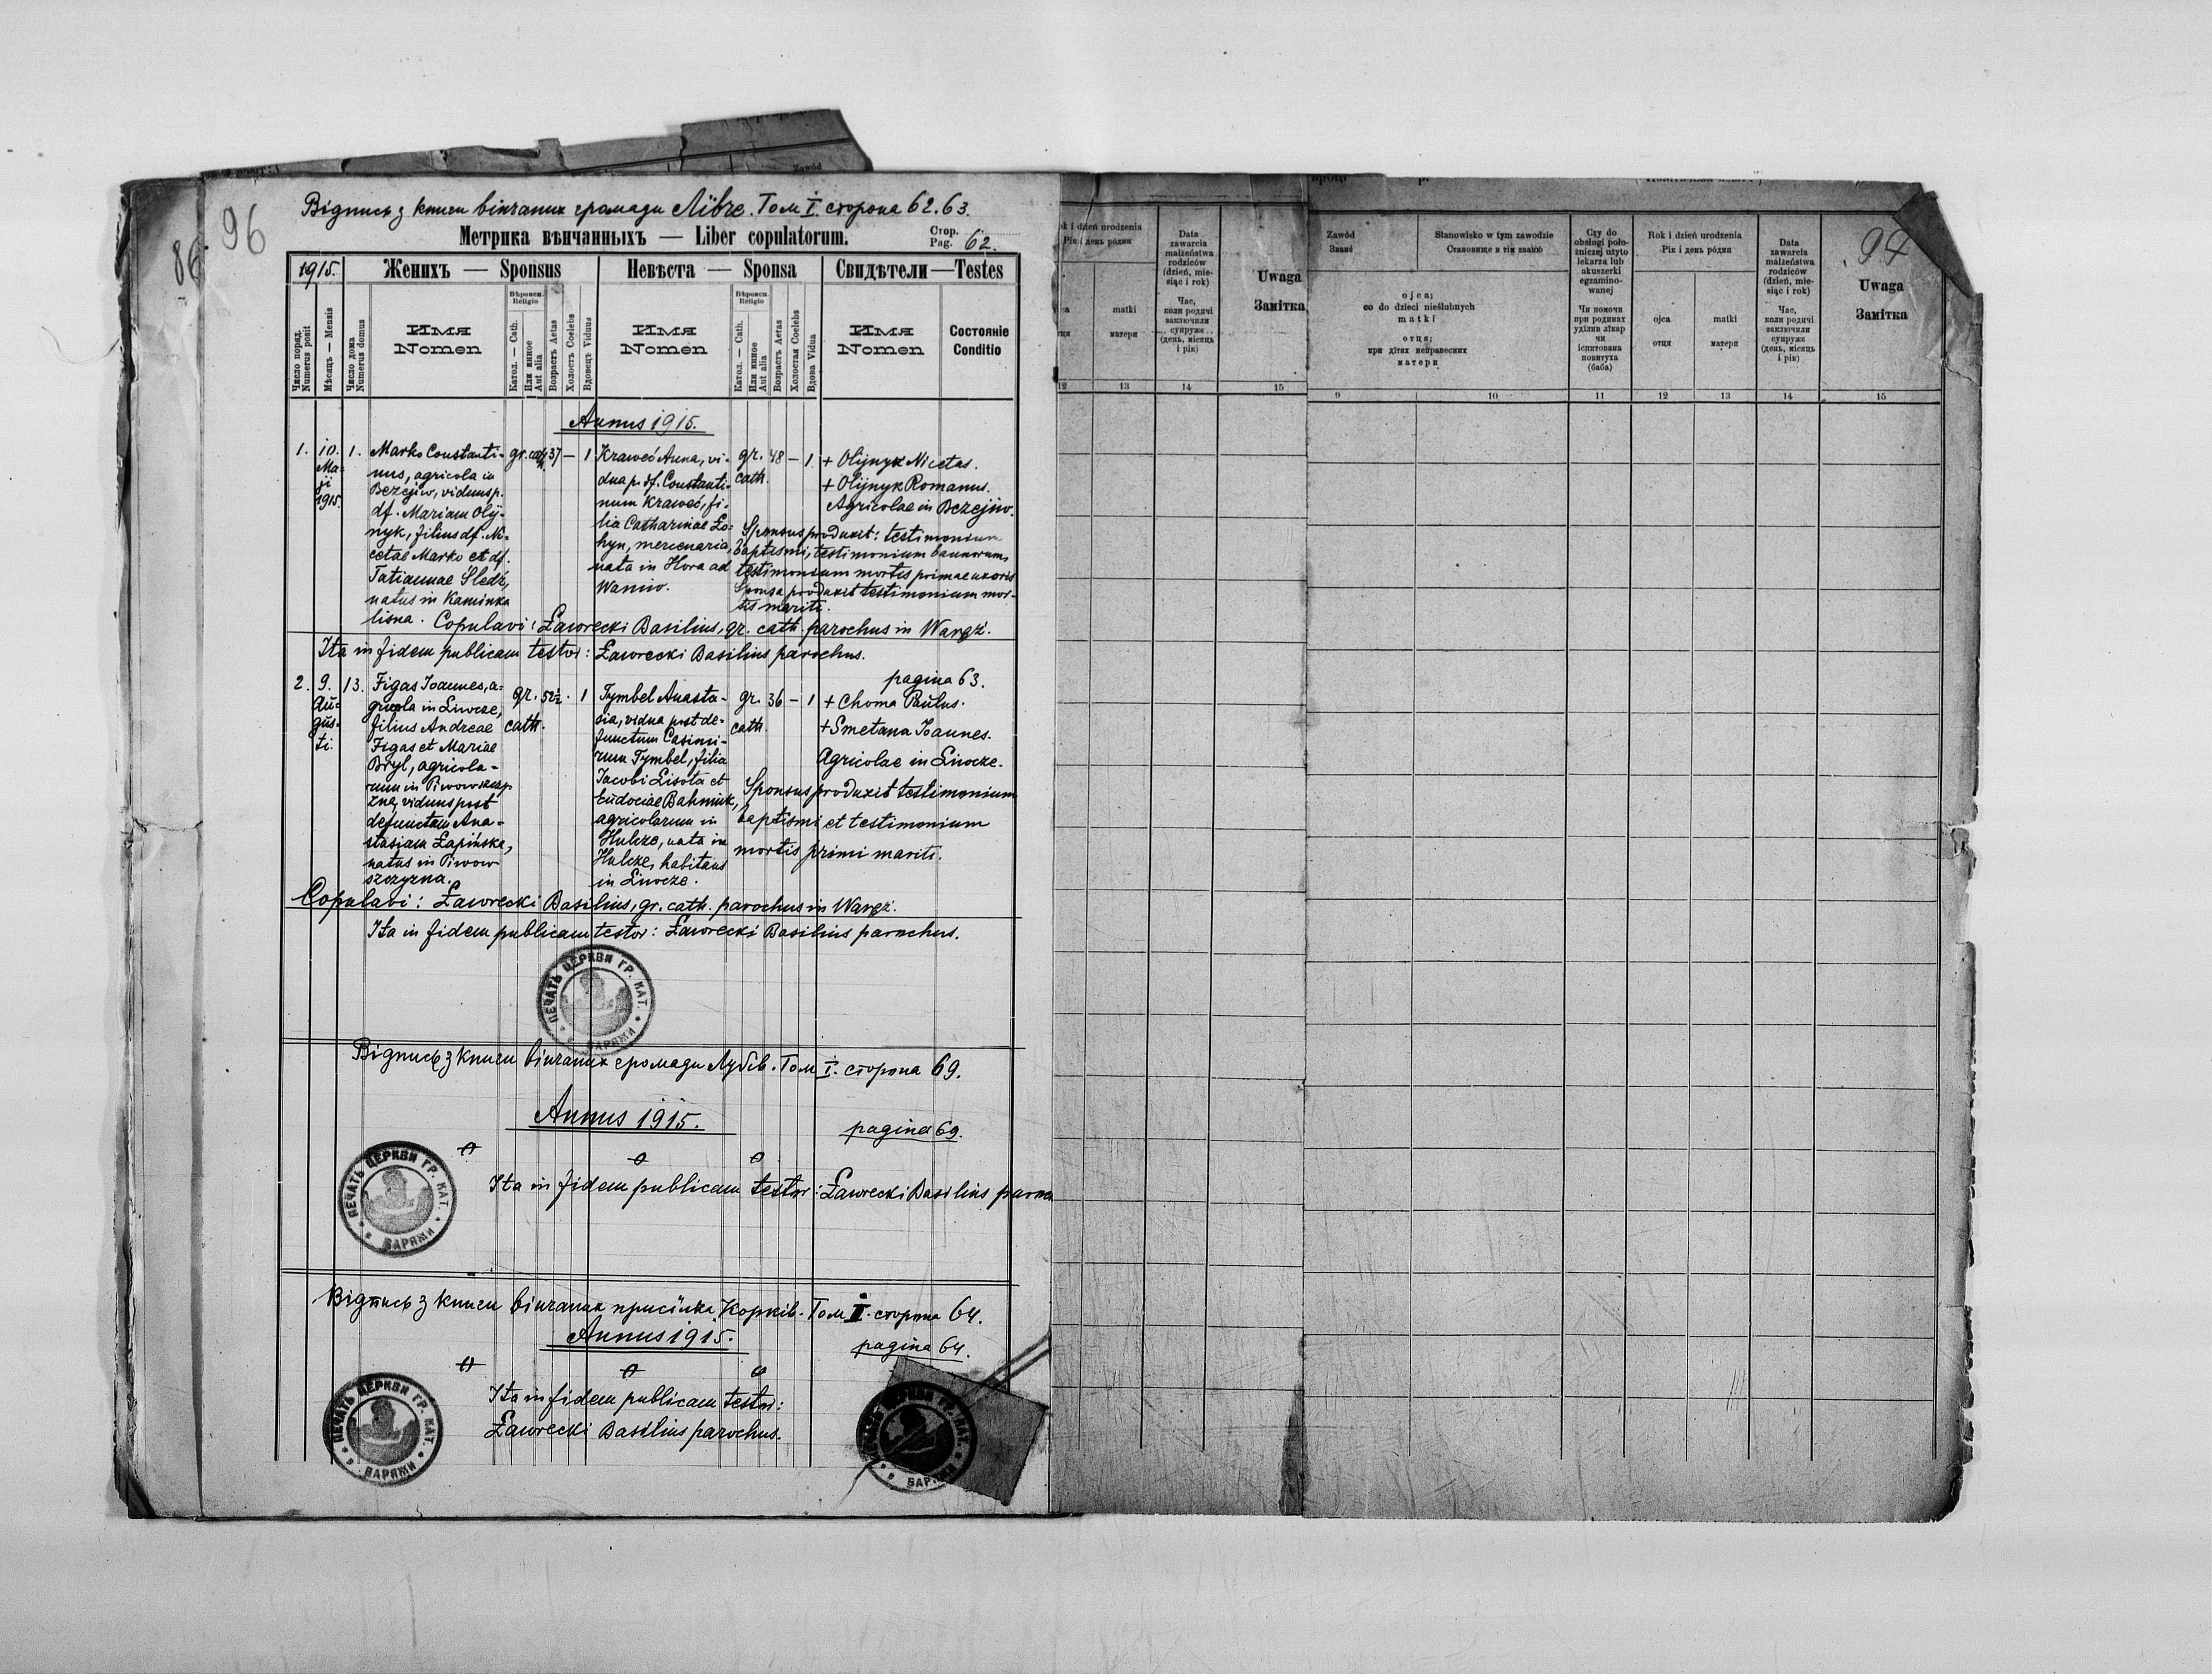 96
86
Відпись з книги вінчаних громади Лївче. Том I. сторона 62. 63.
Метрика вѣнчанныхъ — Liber copulatorum.
Стор.
Pag. 62.
1915.
Женихъ — Sponsus
Невѣста — Sponsa
Свидѣтели — Testes
Число поряд.
Numerus posit
Мѣсяць — Mensis
Число дома
Numerus domus
Имя
Nomen
Вѣроисп.
Religio
Катол. — Cath.
Или инное
Aut alia
Возрастъ Aetas
Холостъ Coelebs
Вдовецъ Viduus
Имя
Nomen
Вѣроисп.
Religio
Катол. — Cath.
Или инное
Aut alia
Возрастъ Aetas
Холостая Coelebs
Вдова Vidua
Имя
Nomen
Состояніе
Conditio
Annus 1915.
1.
10.
Ma-
ji
1915.
1.
Marko Constanti-
nus, agricola in
Bezejów, viduus p.
df. Mariam Olij-
nyk, filius df. Ni-
cetae Marko et df.
Tatiannae Śledź,
natus in Kaminka
lisna.
gr. cath.
37
—
1
Kraweć Anna, vi-
dua p. df. Constanti-
num Kraweć, fi-
lia Catharinae Ło-
hyn, mercenaria,
nata in Hora ad
Waniw.
gr.
cath.
48
—
1
+ Olijnyk Nicetas.
+ Olijnyk Romanus.
Agricolae in Bezejów.
Sponsus produxit: testimonium
baptismi, testimonium bannorum,
testimonium mortis primae uxoris
Sponsa produxit testimonium mor-
tis mariti.
Copulavi: Ławrecki Basilius, gr. cath. parochus in Waręż.
Ita in fidem publicam testor: Ławrecki Basilius parochus.
pagina 63.
2.
9.
Au-
gus-
ti.
13.
Figas Joannes, a-
gricola in Liwcze,
filius Andreae
Figas et Mariae
Bryl, agricola-
rum in Piwowszczy-
zna, viduus post
defunctam Ana-
stasiam Łapińska,
natus in Piwow-
szczyzna.
gr.
cath.
52½
.
1
Tymbel Anasta-
sia, vidua post de-
functum Casimi-
rum Tymbel, filia
Jacobi Lisota et
Eudociae Bahniuk,
agricolarum in
Hulcze, nata in
Hulcze, habitans
in Liwcze.
gr.
cath.
36
—
1
+ Choma Paulus.
+ Smetana Joannes.
Agricolae in Liwcze.
Sponsus produxit testimonium
baptismi et testimonium
mortis primi mariti.
Copulavi: Ławrecki Basilius, gr. cath. parochus in Waręż.
Ita in fidem publicam testor: Ławrecki Basilius parochus.
ПЕЧАТЬ ЦЕРКВИ ГР. КАТ. в ВАРЯЖИ
Відпись з книги вінчаних громади Лубів. Том I. сторона 69.
Annus 1915.
pagina 69.
Ita in fidem publicam testor: Ławrecki Basilius
ПЕЧАТЬ ЦЕРКВИ ГР. КАТ. в ВАРЯЖИ
Відпись з книги вінчаних присїлка Корків. Том I. сторона 64.
Annus 1915.
pagina 64.
Ita in fidem publicam testor:
Ławrecki Basilius parochus.
ПЕЧАТЬ ЦЕРКВИ ГР. КАТ. в ВАРЯЖИ
Zawód
dzień urodzenia
Рік і день родин
matki
матери
Data
zawarcia
małżeństwa
rodziców
(dzień, mie-
siąc i rok)
Час,
коли родичі
заключили
супруже
(день, місяць
і рік)
Uwaga
Замітка
12
13
14
15
Zawód
Званє
Stanowisko w tym zawodzie
Становище в тім званю
ojca;
co do dzieci nieślubnych
matki
отця;
при дїтях неправесних
матери
Czy do
obsługi poło-
żniczej użyto
lekarza lub
akuszerki
egzamino-
wanej
Чи помочи
при родинах
удїлив лїкар
чи
іспитована
повитуха
(баба)
Rok i dzień urodzenia
Рік і день родин
ojca
отця
matki
матери
Data
zawarcia
małżeństwa
rodziców
(dzień, mie-
siąc i rok)
Час,
коли родичі
заключили
супруже
(день, місяць
і рік)
94
Uwaga
Замітка
9
10
11
12
13
14
15